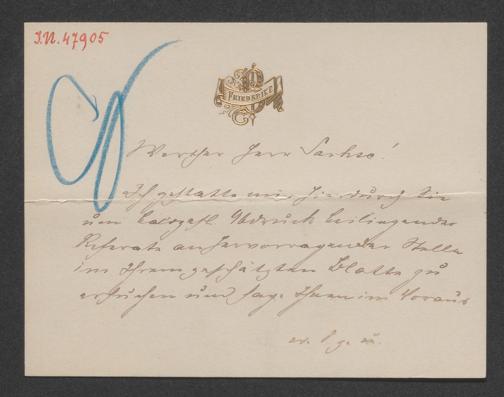 I.N. 47905
FRIEDERIKE
Werther Herr Sachse!
Ich gestatte mir, hierdurch Sie
um balsgefl. Abdruck beiliegender
Referate an hervorragender Stelle
in Ihrem geschätzten Blatte zu
ersuchen und sage Ihnen im Voraus